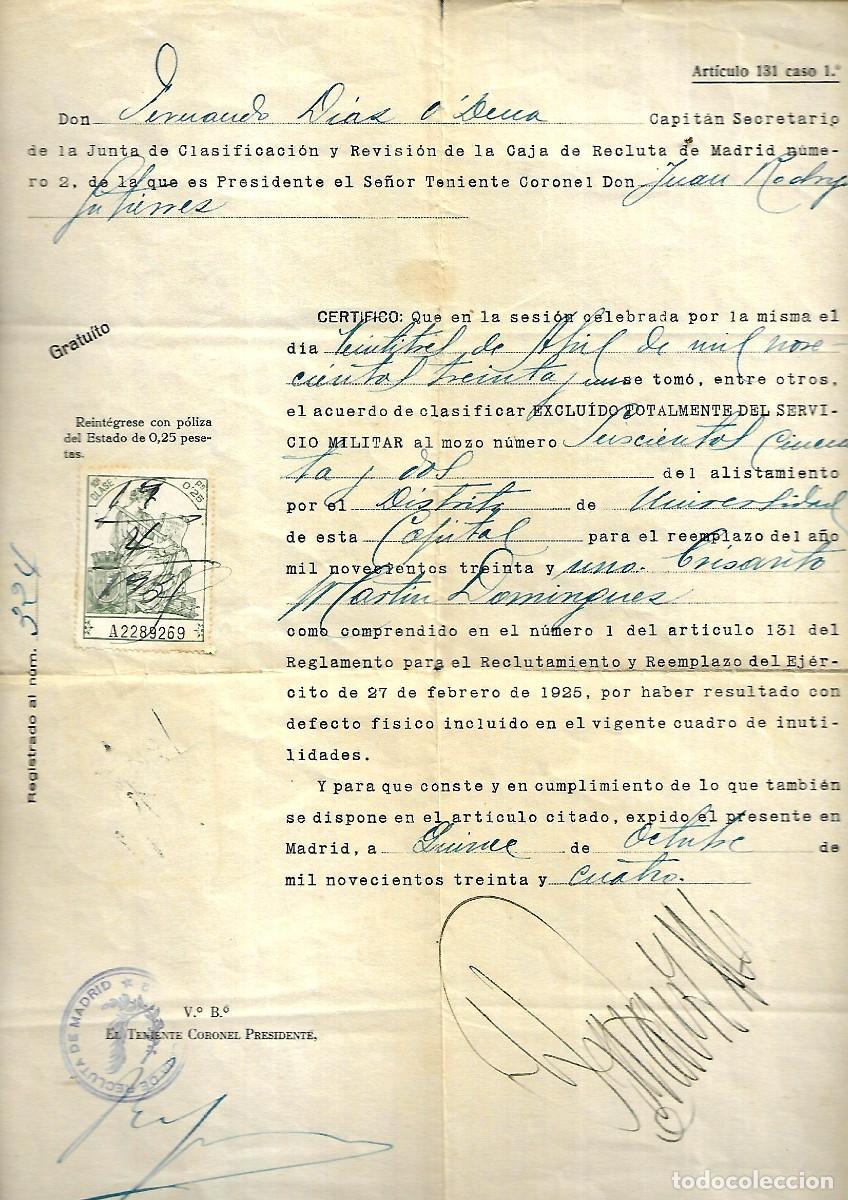 Artículo 131 caso 1.º
Don Fernando Días O'Dena Capitán Secretario
de la Junta de Clasificación y Revisión de la Caja de Recluta de Madrid núme-
ro 2, de la que es Presidente el Señor Teniente Coronel Don Juan Rodrg
Gutierres
Gratuito
CERTIFICO: Que en la sesión celebrada por la misma el
dia Veintitres de Abril de mil nove-
cientos treinta y uno se tomó, entre otros,
el acuerdo de clasificar EXCLUÍDO TOTALMENTE DEL SERVI-
CIO MILITAR al mozo número Cincuen
ta y dos del alistamiento
por el Distrito de Universidad
de esta Capital para el reemplazo del año
mil novecientos treinta y uno. Crisanto
Martin Domingues
como comprendido en el número 1 del articulo 131 del
Reglamento para el Reclutamiento y Reemplazo del Ejér-
cito de 27 de febrero de 1925, por haber resultado con
defecto fisico incluido en el vigente cuadro de inuti-
lidades.
Y para que conste y en cumplimiento de lo que también
se dispone en el artículo citado, expido el presente en
Madrid, a Quince de Octubre de
mil novecientos treinta y cuatro.
Reintégrese con póliza
del Estado de 0,25 pese-
tas.
CLASE
0.25
A2289269
Registrado al núm. 324
V.º B.º
EL TENIENTE CORONEL PRESIDENTE,
DE RECLUTA DE MADRID
todocoleccion